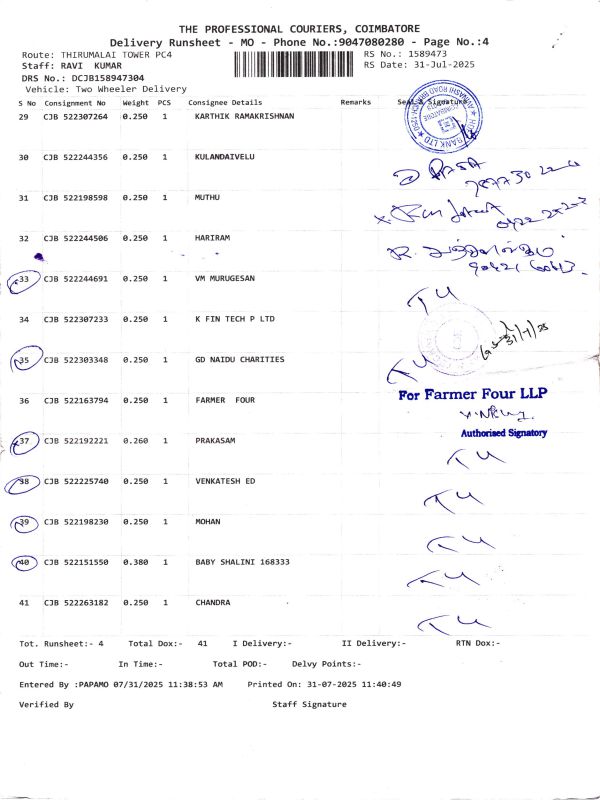 THE PROFESSIONAL COURIERS, COIMBATORE
Delivery Runsheet - MO - Phone No.:9047080280 - Page No.:4
Route: THIRUMALAI TOWER PC4 RS No.: 1589473
Staff: RAVI KUMAR RS Date: 31-Jul-2025
DRS No.: DCJB158947304
Vehicle: Two Wheeler Delivery
S No Consignment No Weight PCS Consignee Details Remarks Seal & Signature
29 CJB 522307264 0.250 1 KARTHIK RAMAKRISHNAN
30 CJB 522244356 0.250 1 KULANDAIVELU
31 CJB 522198598 0.250 1 MUTHU
32 CJB 522244506 0.250 1 HARIRAM
33 CJB 522244691 0.250 1 VM MURUGESAN
TU
34 CJB 522307233 0.250 1 K FIN TECH P LTD
35 CJB 522303348 0.250 1 GD NAIDU CHARITIES
TU
36 CJB 522163794 0.250 1 FARMER FOUR
For Farmer Four LLP
Authorised Signatory
37 CJB 522192221 0.260 1 PRAKASAM
TU
38 CJB 522225740 0.250 1 VENKATESH ED
TU
39 CJB 522198230 0.250 1 MOHAN
TU
40 CJB 522151550 0.380 1 BABY SHALINI 168333
TU
41 CJB 522263182 0.250 1 CHANDRA
TU
Tot. Runsheet:- 4 Total Dox:- 41 I Delivery:- II Delivery:- RTN Dox:-
Out Time:- In Time:- Total POD:- Delvy Points:-
Entered By :PAPAMO 07/31/2025 11:38:53 AM Printed On: 31-07-2025 11:40:49
Verified By Staff Signature